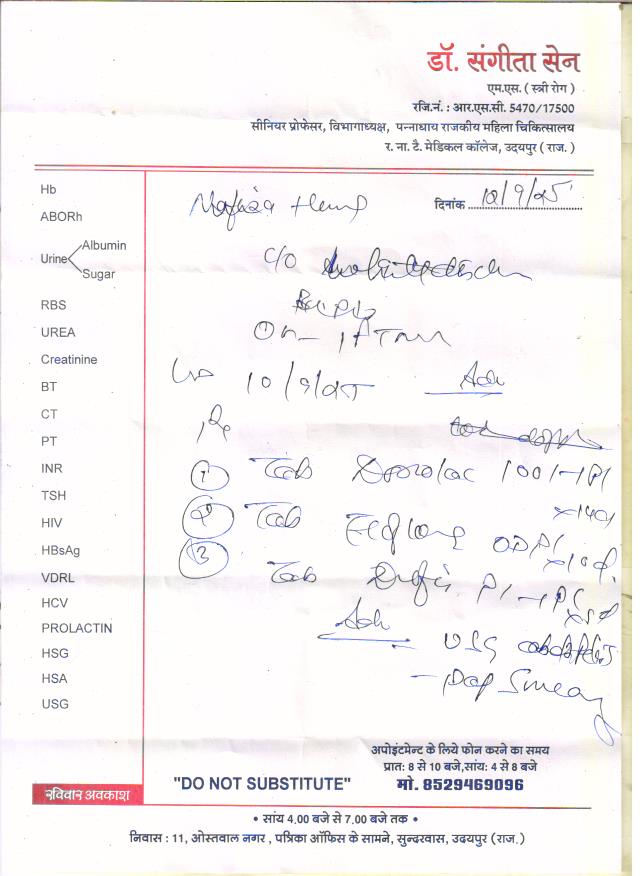 डॉ. संगीता सेन
एम.एस. ( स्त्री रोग )
रजि.नं. : आर.एस.सी. 5470/17500
सीनियर प्रोफेसर, विभागाध्यक्ष, पन्नाधाय राजकीय महिला चिकित्सालय
र. ना. टै. मेडिकल कॉलेज, उदयपुर ( राज. )
दिनांक 12/9/25
Hb
ABORh
Urine Albumin
Sugar
RBS
UREA
Creatinine
BT
CT
PT
INR
TSH
HIV
HBsAg
VDRL
HCV
PROLACTIN
HSG
HSA
USG
C/O
On
10/9/25 Adv
Rx
1 Tab 100 1-1
2 Tab OD
3 Tab
Adv
USG
- Pap Smear
अपोइंटमेन्ट के लिये फोन करने का समय
प्रात: 8 से 10 बजे,सांय: 4 से 8 बजे
"DO NOT SUBSTITUTE" मो. 8529469096
रविवार अवकाश
• सांय 4.00 बजे से 7.00 बजे तक •
निवास : 11, ओस्तवाल नगर , पत्रिका ऑफिस के सामने, सुन्दरवास, उदयपुर (राज.)